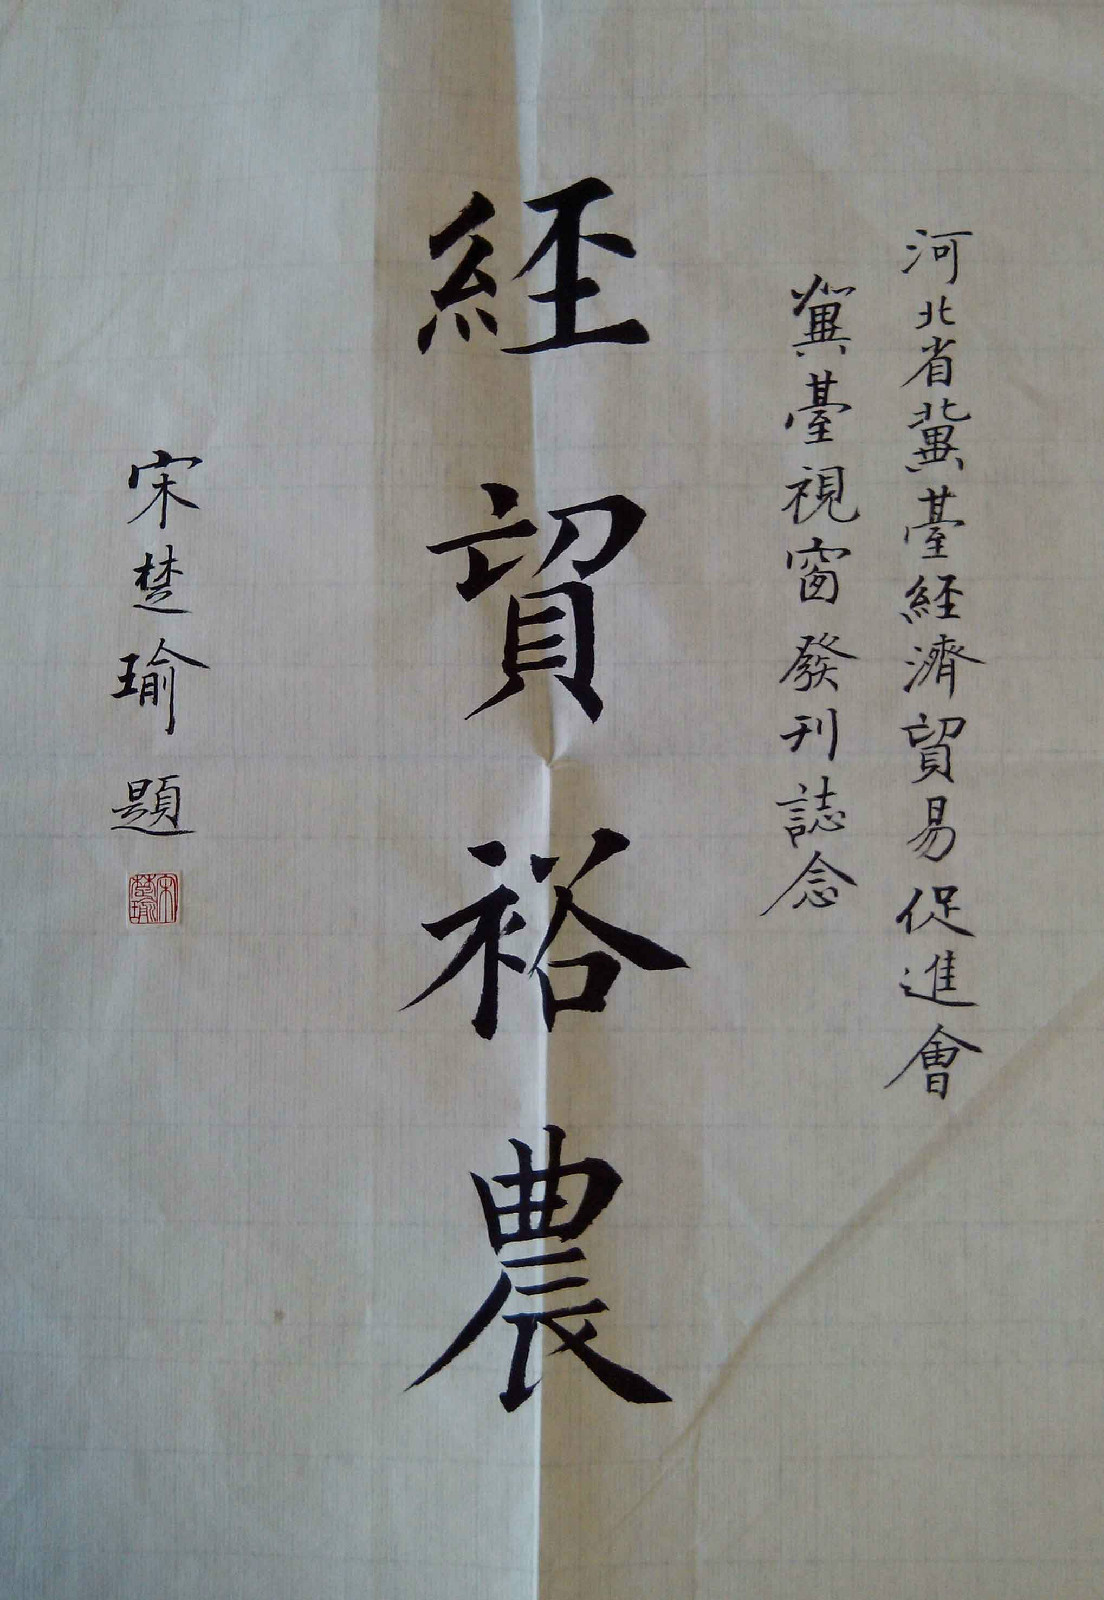 河北省冀臺經濟貿易促進會
冀臺視窗發刊誌念
經貿裕農
宋楚瑜題
宋楚瑜